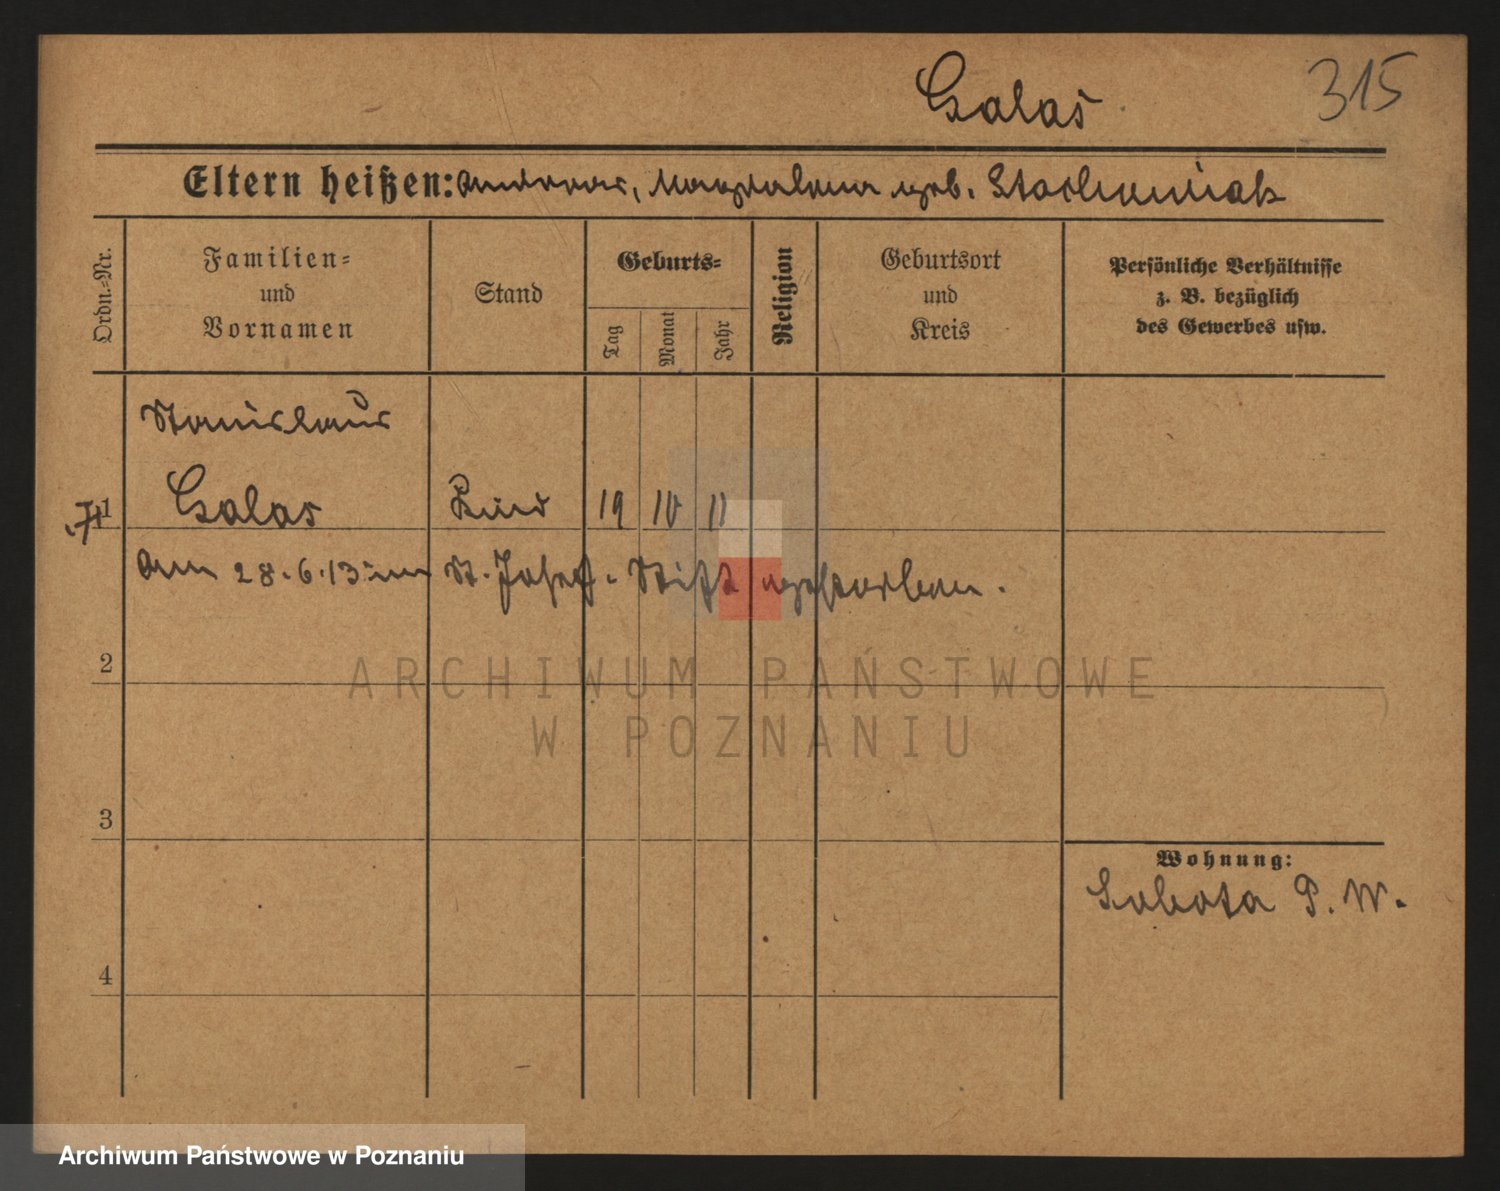 Galas
315
Eltern heißen: Andreas, Magdalena geb. Stachowiak
Ordn.-Nr.
Familien-
und
Vornamen
Stand
Geburts-
Tag
Monat
Jahr
Religion
Geburtsort
und
Kreis
Persönliche Verhältnisse
z. B. bezüglich
des Gewerbes usw.
Stanislaus
1 Galas Kind 19 10 11
am 28.6.13 im St. Josef-Stift gestorben.
2
3
4
Wohnung:
Sobota P. W.
ARCHIWUM PAŃSTWOWE
W POZNANIU
Archiwum Państwowe w Poznaniu